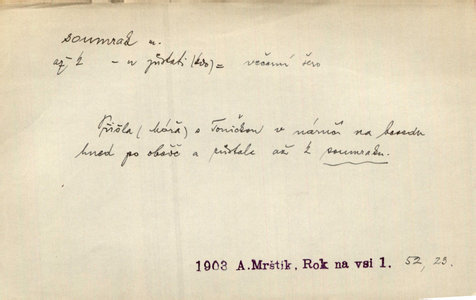 soumrak m.
až k – u zůstati (kdo) = večerní šero
Přišla (Mářa) s Toničkou v náručí na besedu
hned po obědě a zůstala až k soumraku.
1903 A.Mrštík, Rok na vsi 1. 52, 23.